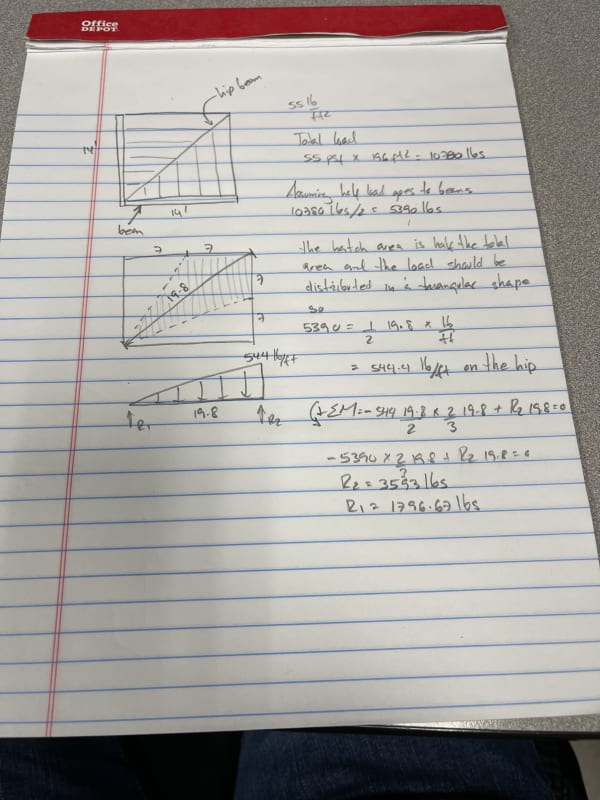 Office
DEPOT
hip beam
14'
14'
beam
55 lb/ft2
Total load
55 psf x 196 ft2 = 10780 lbs
Assuming half load goes to beams
10780 lbs/2 = 5390 lbs
7 7
7
7
19.8
The hatch area is half the total
area and the load should be
distributed in a triangular shape
so
5390 = 1/2 19.8 x lb/ft
= 544.4 lb/ft on the hip
544 lb/ft
R1 19.8 R2
+ΣM = -544 19.8/2 x 2/3 19.8 + R2 19.8 = 0
-5390 x 2/3 19.8 + R2 19.8 = 0
R2 = 3593 lbs
R1 = 1796.67 lbs